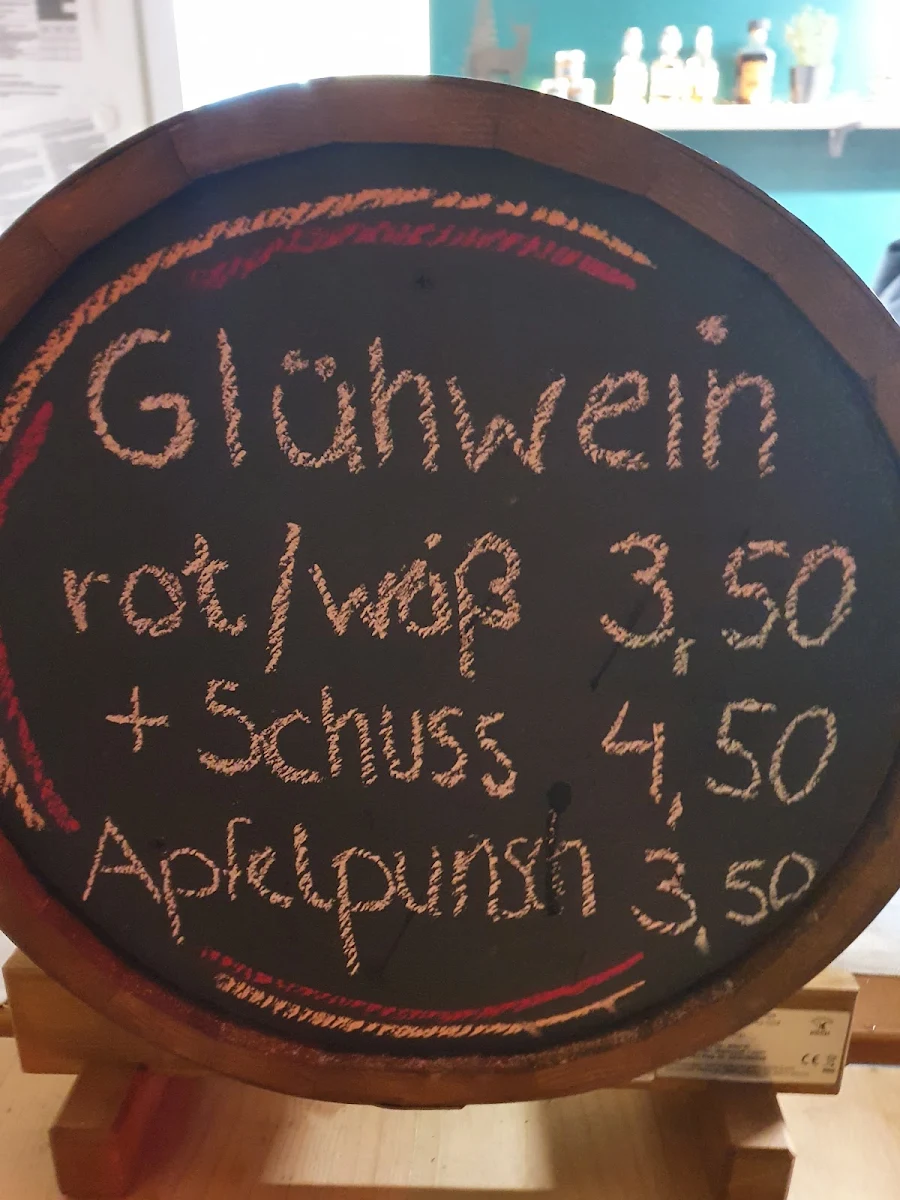 Glühwein
rot/weiß 3,50
+ Schuss 4,50
Apfelpunsch 3,50
CE